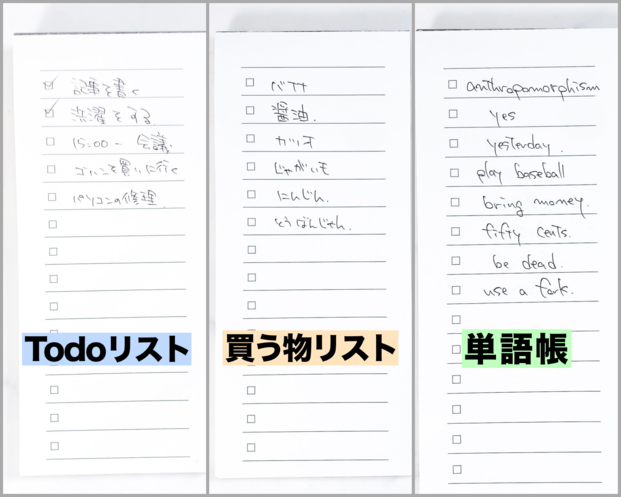 記事を書く
洗濯をする
15:00 - 会議
ゴハンを買いに行く
パソコンの修理
Todoリスト
バナナ
醤油
カツオ
じゃがいも
にんじん
とうばんじゃん
買う物リスト
anthropomorphism
yes
yesterday.
play baseball
bring money.
fifty cents.
be dead.
use a fork.
単語帳